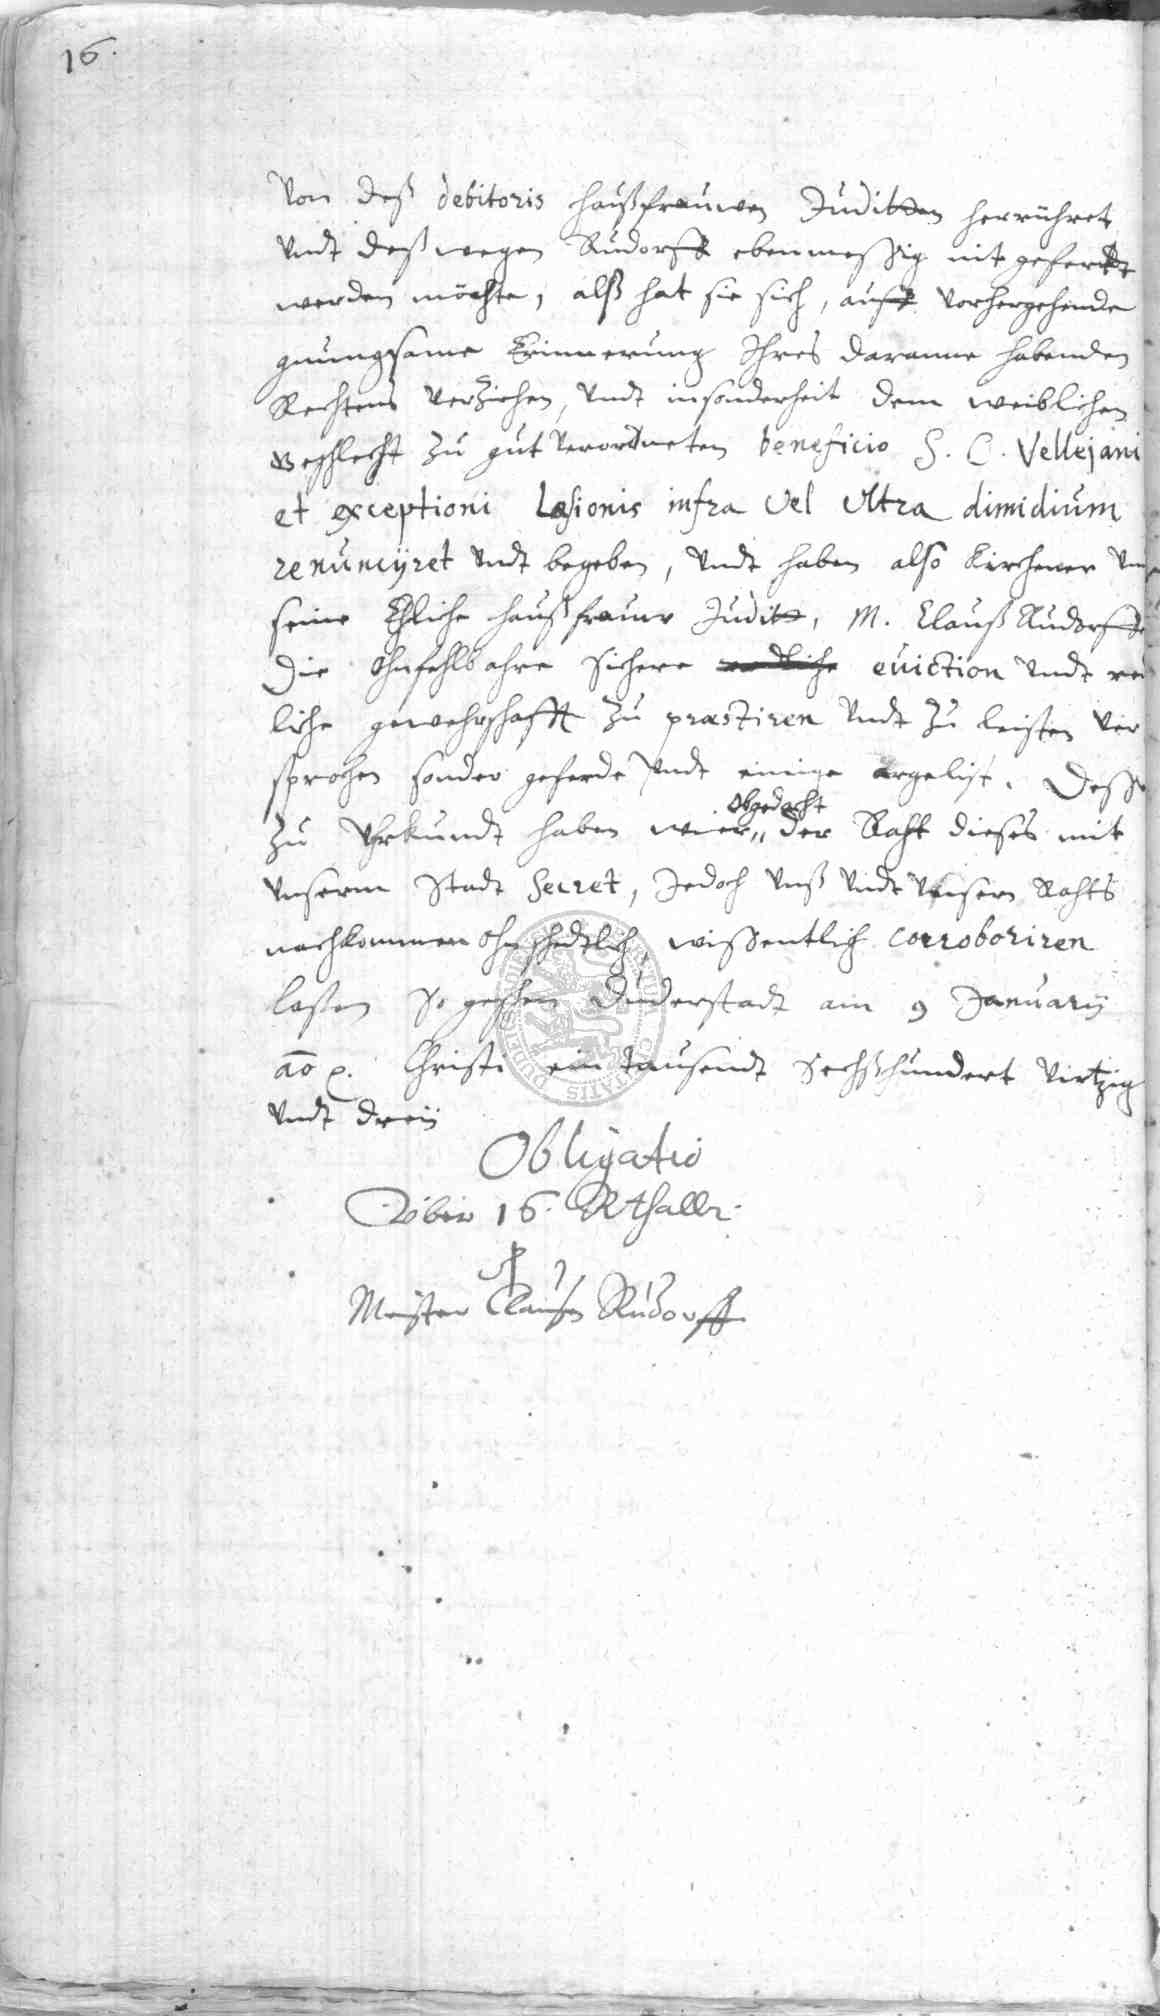 16.
Von deß debitoris haußfrauwen Juditten herrühret
undt deßwegen Rudorff ebenmeßig nit gefertt
werden möchte, alß hat sie sich, auff vorhergehende
gnungsame Erinnerung Ihres daranne habenden
Rechtens verziehen, undt insonderheit dem weiblichen
Geschlecht zu gut verordneten beneficio S. C. Vellejani
et exceptioni Læsionis infra vel ultra dimidium
renunciiret undt begeben, undt haben also Kirchener
seine Ehliche haußfrauw Juditt, M. Clauß Rudorff
die ohnfehlbahre sichere eviction undt red
liche gewehrschafft zu præstiren undt zu leisten ver
sprochen sonder geferde undt einige argelist. Desse
obgedacht
zu Uhrkundt haben wier,, der Raht dieses mit
unserm Stadt Secret, Jedoch unß undt unsern Rahts
nachkommen ohnschedtlich, wissentlich corroboriren
laßen So geschen Duderstadt am 9 Januarii
ao p. Christi ein tausendt Sechßhundert viertzig
undt dreii
Obligatio
über 16. Rthaller.
Meister Claußen Rudorff